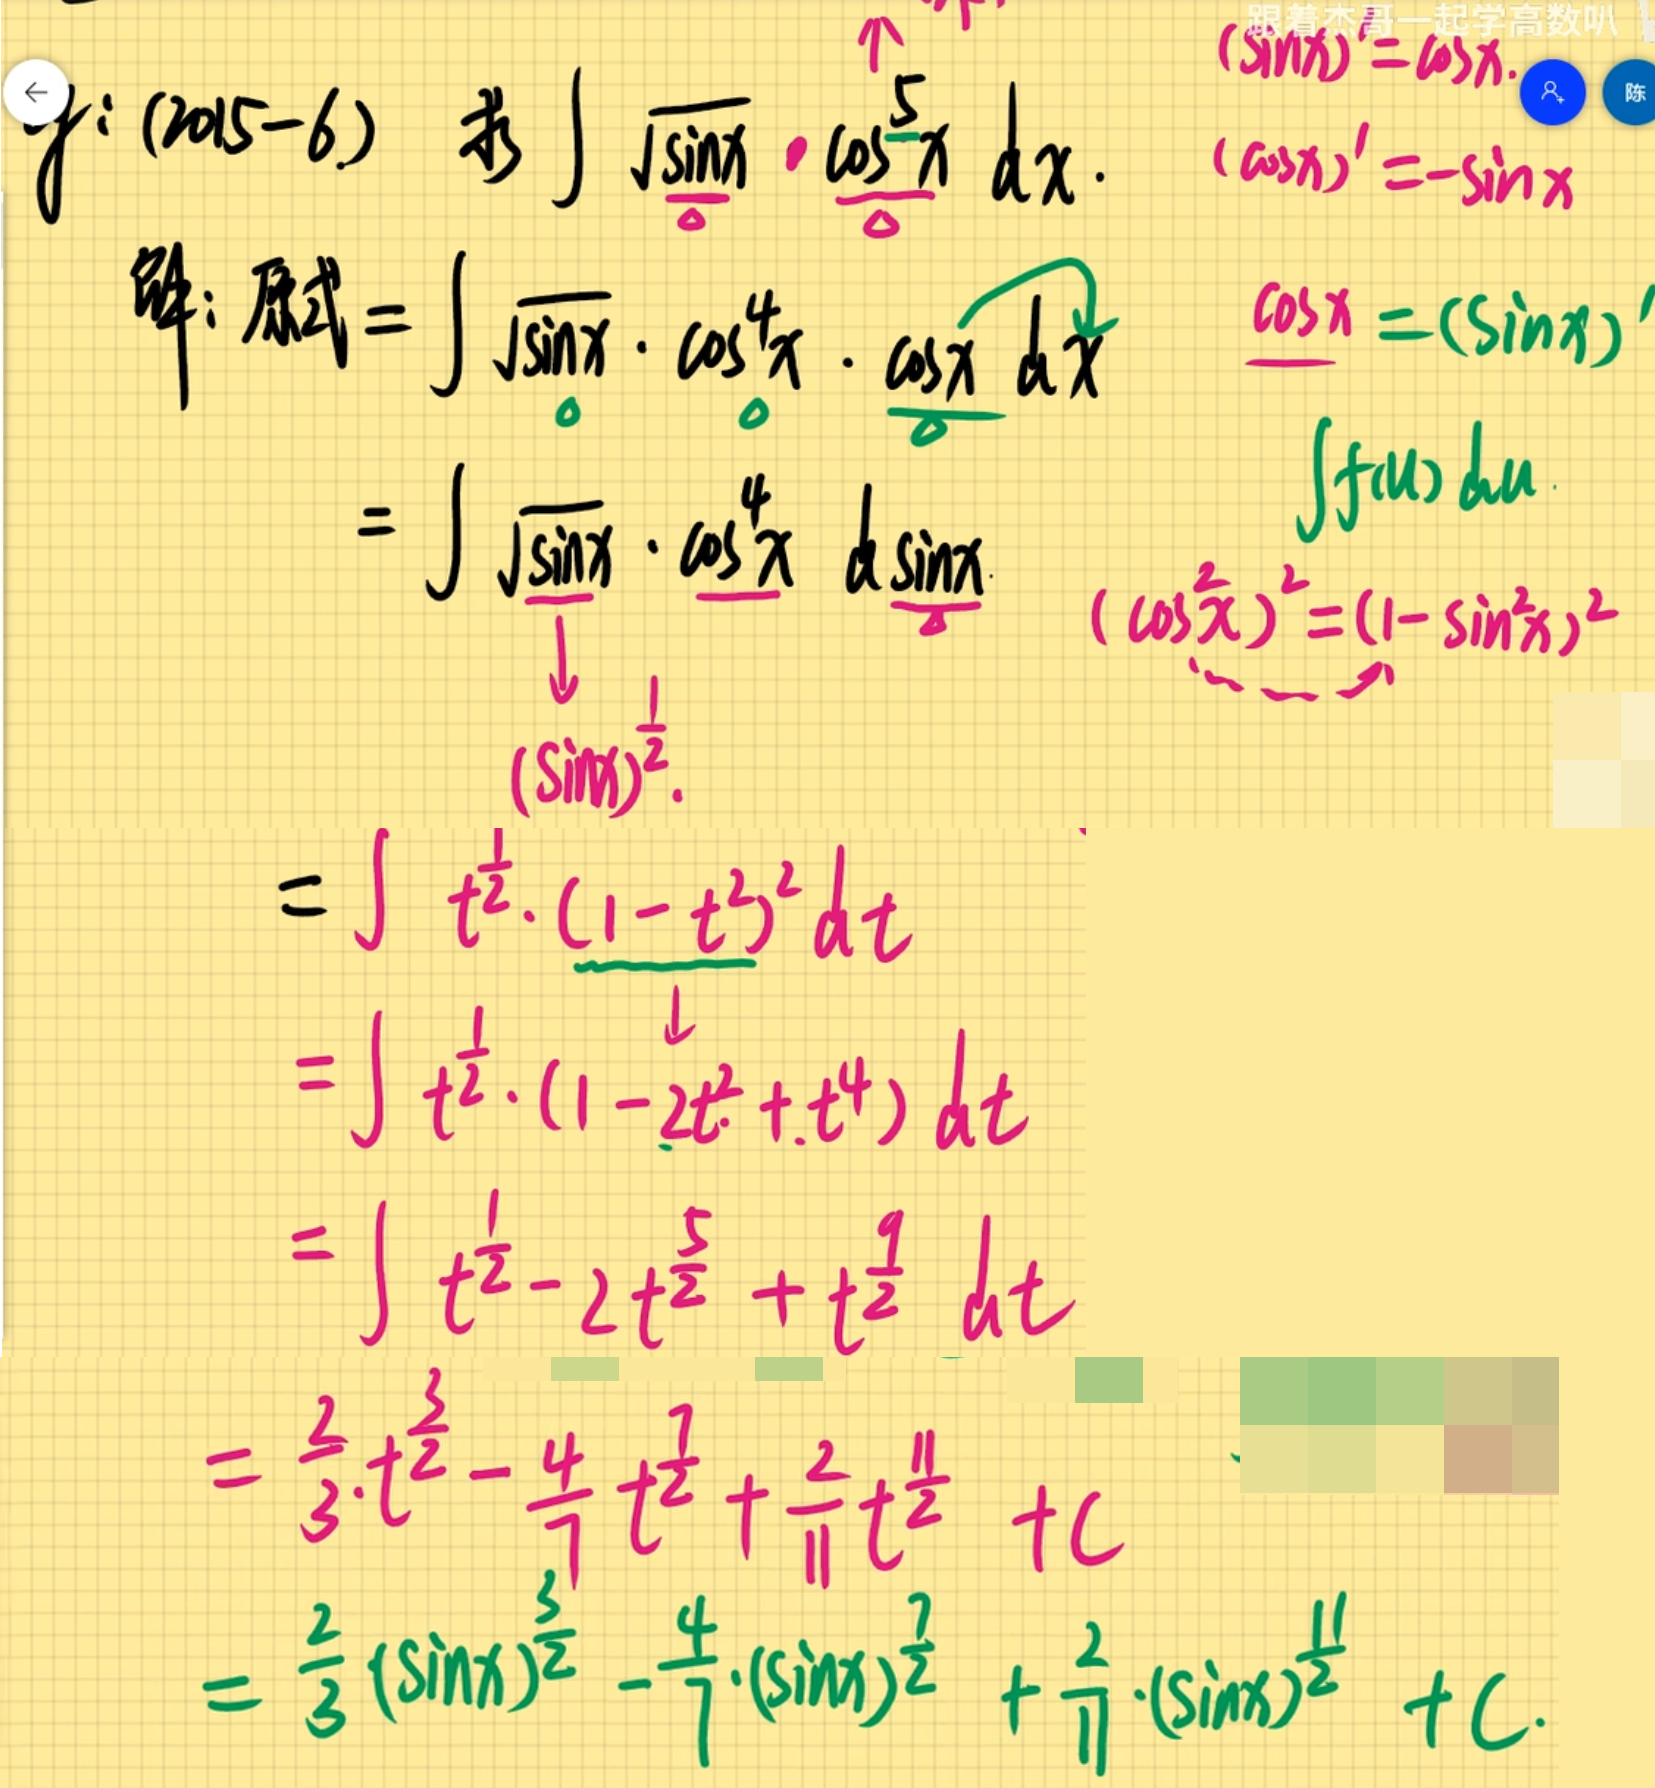 跟着杰哥一起学高数叭
(sinx)′=cosx.
陈
(2015-6) 求 ∫ √sinx · cos⁵x dx.
(cosx)′=-sinx
解: 原式 = ∫ √sinx · cos⁴x · cosx dx
cosx =(sinx)′
∫f(u) du.
= ∫ √sinx · cos⁴x d sinx.
(cos²x)²=(1-sin²x)²
↓
(sinx)^(1/2).
= ∫ t^(1/2)·(1-t²)² dt
↓
= ∫ t^(1/2)·(1-2t²+t⁴) dt
= ∫ t^(1/2) - 2t^(5/2) + t^(9/2) dt
= 2/3·t^(3/2) - 4/7 t^(7/2) + 2/11 t^(11/2) +C
= 2/3·(sinx)^(3/2) - 4/7·(sinx)^(7/2) + 2/11·(sinx)^(11/2) +C.